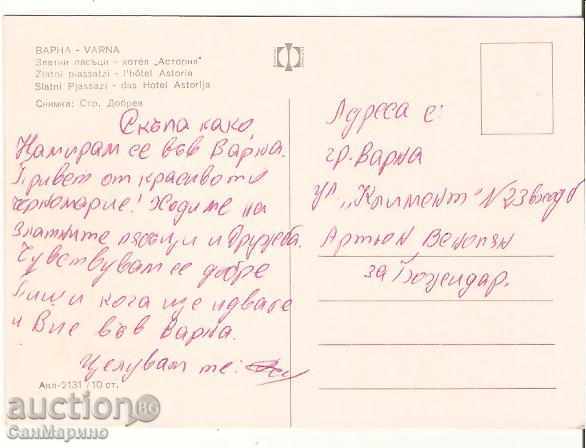 ВАРНА - VARNA
Златни пясъци - хотел „Астория"
Zlatni piassatzi - l'hôtel Astoria
Slatni Pjassazi - das Hotel Astorija
Снимка: Стр. Добрев
Скъпа како,
Намирам се във Варна.
Привет от красивото
черноморие! Ходиме на
Златните пясъци и Дружба.
Чувствувам се добре
Пиши кога ще идвате
и Вие във Варна.
Целувам те:
Адреса е:
гр. Варна
ул „Климент" N 23 вход б
Артюн
за Божидар.
Акл-2131 /10 ст.
auction BG
СанМарино